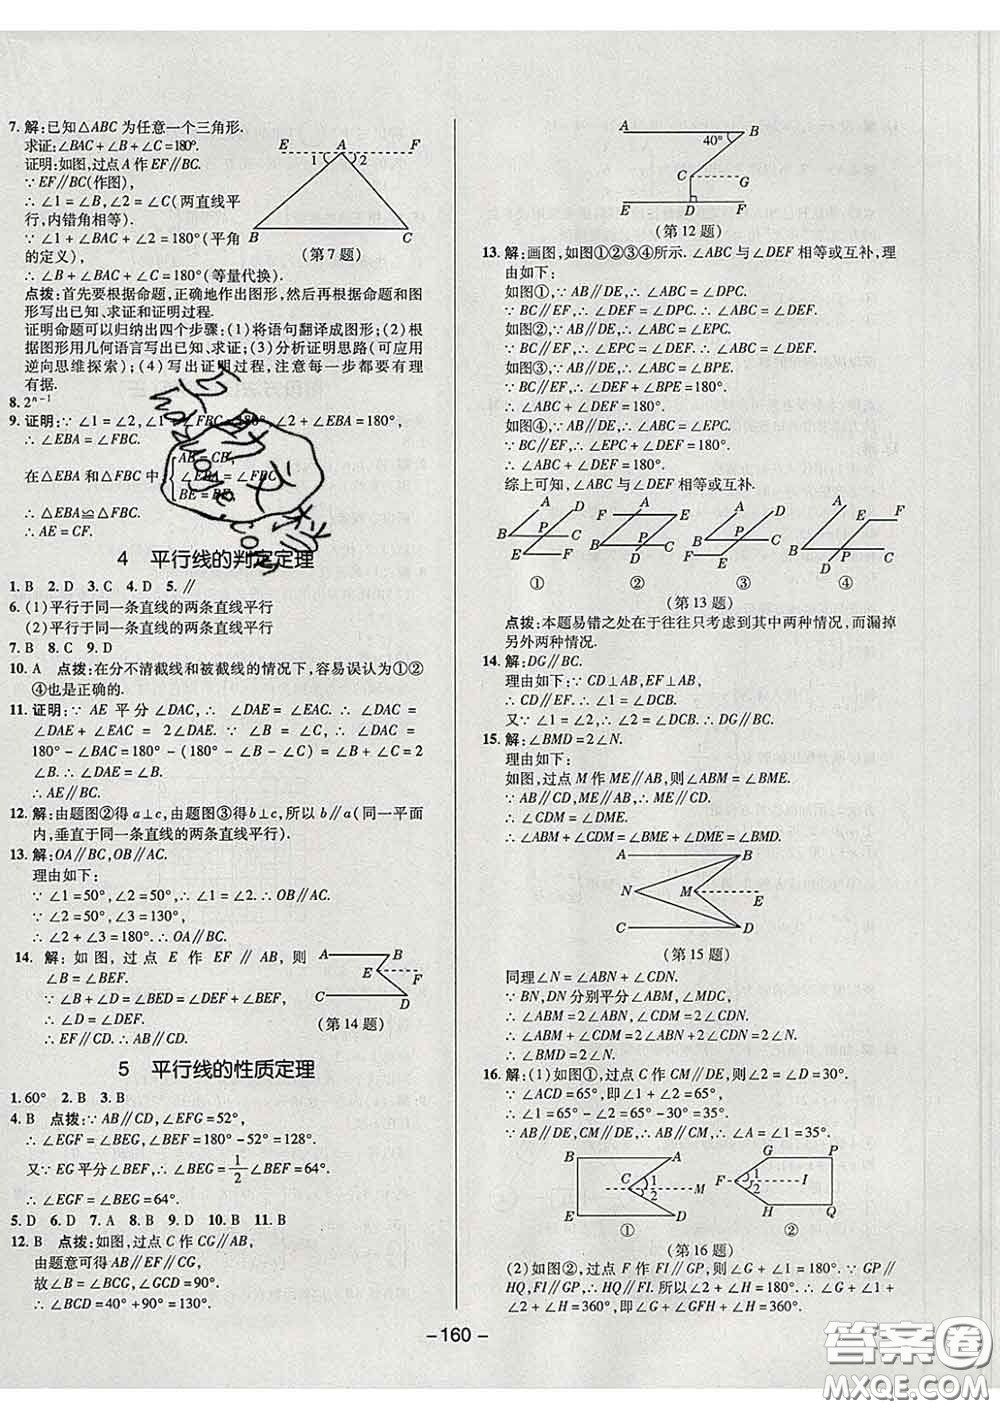 7. 解:已知△ABC 为任意一个三角形.
求证:∠BAC+∠B+∠C=180°.
证明:如图,过点 A 作 EF∥BC.
∵ EF∥BC(作图),
∴ ∠1=∠B, ∠2=∠C(两直线平
行,内错角相等).
∵ ∠1+∠BAC+∠2=180°(平角
的定义),
∴ ∠B+∠BAC+∠C=180°(等量代换).
E A F
1 2
B C
(第 7 题)
点拨:首先要根据命题,正确地作出图形,然后再根据命题和图
形写出已知、求证和证明过程.
证明命题可以归纳出四个步骤:(1)将语句翻译成图形;(2)根
据图形用几何语言写出已知、求证;(3)分析证明思路(可应用
逆向思维探索);(4)写出证明过程,注意每一步都要有理
有据.
8. 2ⁿ⁻¹
9. 证明:∵ ∠1=∠2,∠1+∠FBC=180°,∠2+∠EBA=180°,
∴ ∠EBA=∠FBC.
在△EBA 和△FBC 中
AB=CB,
∠EBA=∠FBC,
BE=BF,
∴ △EBA≌△FBC.
∴ AE=CF.
4 平行线的判定定理
1. B 2. D 3. C 4. D 5. ∥
6. (1)平行于同一条直线的两条直线平行
(2)平行于同一条直线的两条直线平行
7. B 8. C 9. D
10. A 点拨:在分不清截线和被截线的情况下,容易误认为①②
④也是正确的.
11. 证明:∵ AE 平分∠DAC,∴ ∠DAE=∠EAC.∴ ∠DAC=
∠DAE+∠EAC=2∠DAE.∵ ∠BAC=180°-∠DAC=
180°-∠BAC=180°-(180°-∠B-∠C)=∠B+∠C=2
∠B.∴ ∠DAE=∠B.
∴ AE∥BC.
12. 解:由题图②得 a⊥c,由题图③得 b⊥c,所以 b∥a(同一平面
内,垂直于同一条直线的两条直线平行).
13. 解:OA∥BC,OB∥AC.
理由如下:
∵ ∠1=50°,∠2=50°,∴ ∠1=∠2.∴ OB∥AC.
∵ ∠2=50°,∠3=130°,
∴ ∠2+∠3=180°.∴ OA∥BC.
14. 解:如图,过点 E 作 EF∥AB,则
∠B=∠BEF.
∵ ∠B+∠D=∠BED=∠DEF+∠BEF,
∴ ∠D=∠DEF.
∴ EF∥CD.∴ AB∥CD.
A B
E F
C D
(第 14 题)
5 平行线的性质定理
1. 60° 2. B 3. B
4. B 点拨:∵ AB∥CD,∠EFG=52°,
∴ ∠EGF=∠BEG,∠BEF=180°-52°=128°.
又∵ EG 平分∠BEF,∴ ∠BEG=1/2∠BEF=64°.
∴ ∠EGF=∠BEG=64°.
5. D 6. D 7. A 8. B 9. D 10. B 11. B
12. B 点拨:如图,过点 C 作 CG∥AB,
由题意可得 AB∥EF∥CG,
故∠B=∠BCG,∠GCD=90°.
∴ ∠BCD=40°+90°=130°.
A 40° B
C G
E D F
(第 12 题)
13. 解:画图,如图①②③④所示. ∠ABC 与∠DEF 相等或互补,理
由如下:
如图①,∵ AB∥DE,∴ ∠ABC=∠DPC.
∵ BC∥EF,∴ ∠DEF=∠DPC.∴ ∠ABC=∠DEF.
如图②,∵ AB∥DE,∴ ∠ABC=∠EPC.
∵ BC∥EF,∴ ∠DEF=∠EPC.∴ ∠ABC=∠DEF.
如图③,∵ AB∥DE,∴ ∠ABC=∠BPE.
∵ BC∥EF,∴ ∠DEF+∠BPE=180°.
∴ ∠ABC+∠DEF=180°.
如图④,∵ AB∥DE,∴ ∠ABC=∠EPC.
∵ BC∥EF,∴ ∠EPC+∠DEF=180°.
∴ ∠ABC+∠DEF=180°.
综上可知,∠ABC 与∠DEF 相等或互补.
A D F A E A D A E F
B P C B P C B P C B P C
E F D F E D
① ② ③ ④
(第 13 题)
点拨:本题易错之处在于往往只考虑到其中两种情况,而漏掉
另外两种情况.
14. 解:DG∥BC.
理由如下:∵ CD⊥AB,EF⊥AB,
∴ CD∥EF.∴ ∠2=∠DCB.
又∵ ∠1=∠2,∴ ∠1=∠DCB.∴ DG∥BC.
15. 解:∠BMD=2∠N.
理由如下:
如图,过点 M 作 ME∥AB,则∠ABM=∠BME.
∵ AB∥CD,∴ ME∥CD.
∴ ∠CDM=∠DME.
∴ ∠ABM+∠CDM=∠BME+∠DME=∠BMD.
A B
N M E
C D
(第 15 题)
同理∠N=∠ABN+∠CDN.
∵ BN,DN 分别平分∠ABM,∠MDC,
∴ ∠ABM=2∠ABN,∠CDM=2∠CDN.
∴ ∠ABM+∠CDM=2∠ABN+2∠CDN=2∠N.
∴ ∠BMD=2∠N.
16. 解:(1)如图①,过点 C 作 CM∥DE,则∠2=∠D=30°.
∵ ∠ACD=65°,即∠1+∠2=65°,
∴ ∠1=65°-∠2=65°-30°=35°.
∵ AB∥DE,CM∥DE,∴ CM∥AB.∴ ∠A=∠1=35°.
B A G P
C 1 2 M F 1 2 I
E D H Q
① ②
(第 16 题)
(2)如图②,过点 F 作 FI∥GP,则∠G+∠1=180°.∵ GP∥
HQ,FI∥GP,∴ HQ∥FI.∴ ∠2+∠H=180°.所以∠1+∠G+
∠2+∠H=360°,即∠G+∠GFH+∠H=360°.
-160-
答案圈
MXQE.COM